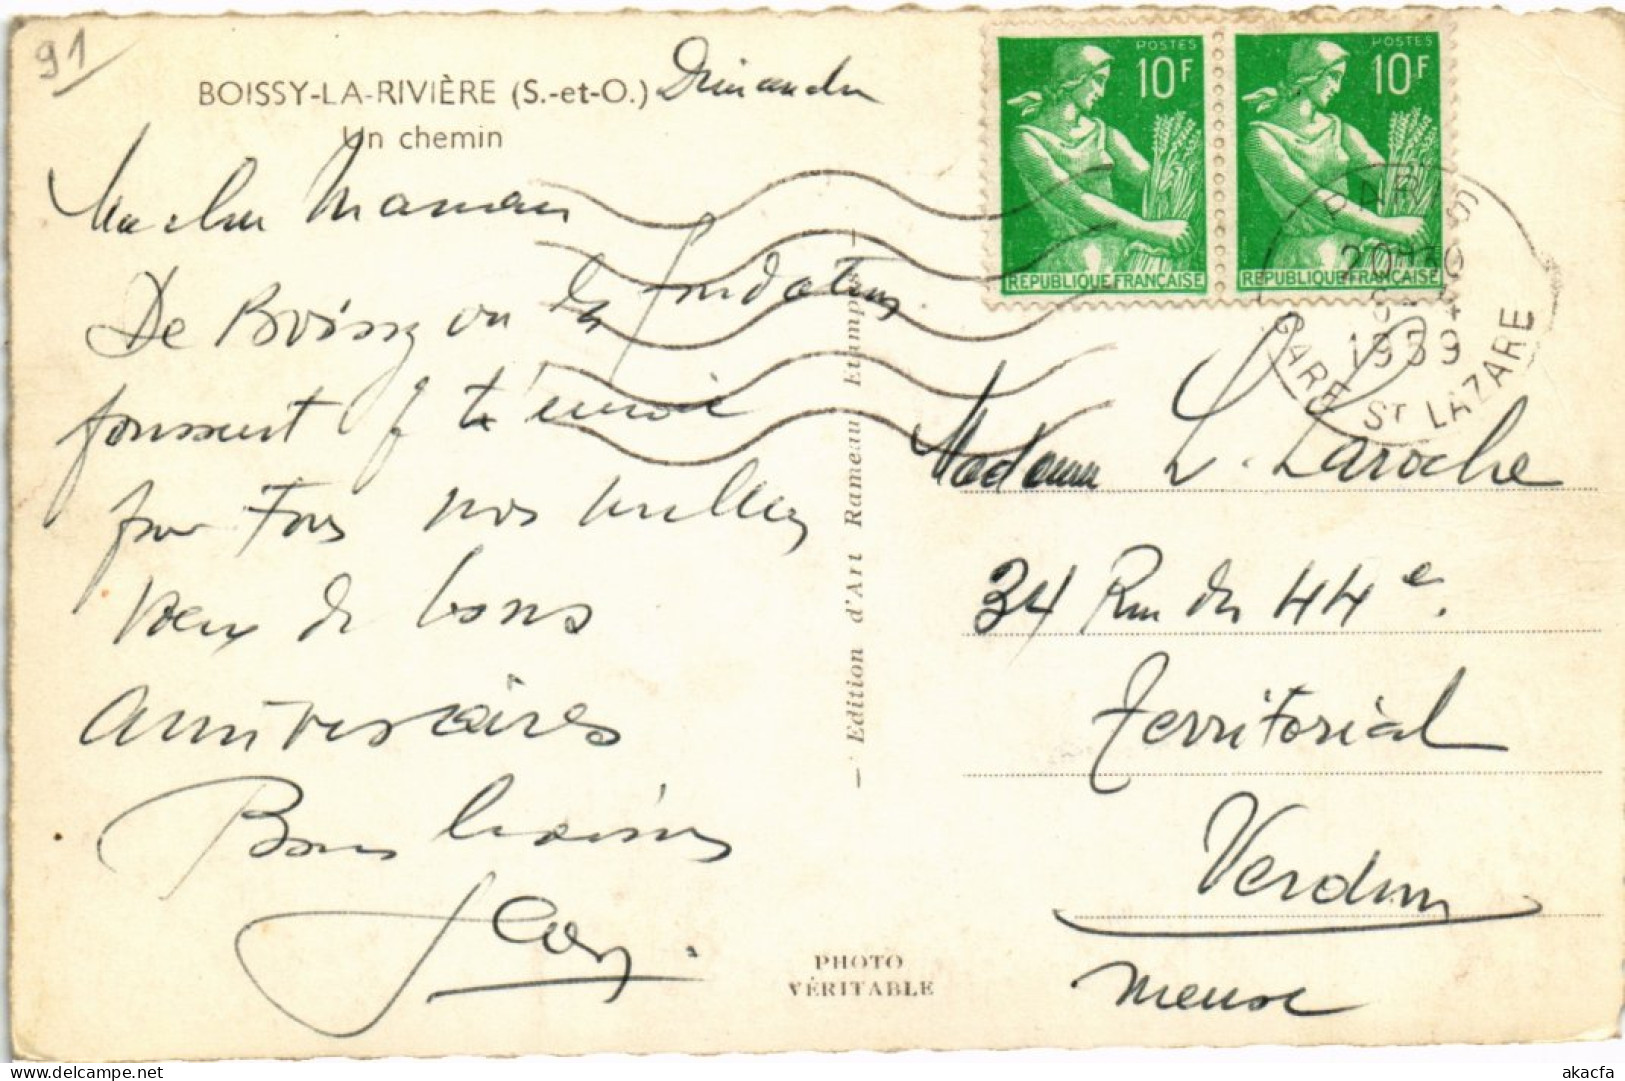 91
BOISSY-LA-RIVIÈRE (S.-et-O.) Dimanche
Un chemin
Ma chère Maman
De Boissy où les
poussent je t'envoie
par Fois nos meilleurs
vœux de bons
anniversaires
Bons baisers
— Edition d'Art Rameau Etampes —
PHOTO
VÉRITABLE
POSTES
10F
REPUBLIQUE FRANÇAISE
POSTES
10F
REPUBLIQUE FRANÇAISE
PARIS
1959
GARE ST LAZARE
Madame L. Laroche
34 Rue du 44e.
Territorial
Verdun
Meuse
akacfa
delcampe.net